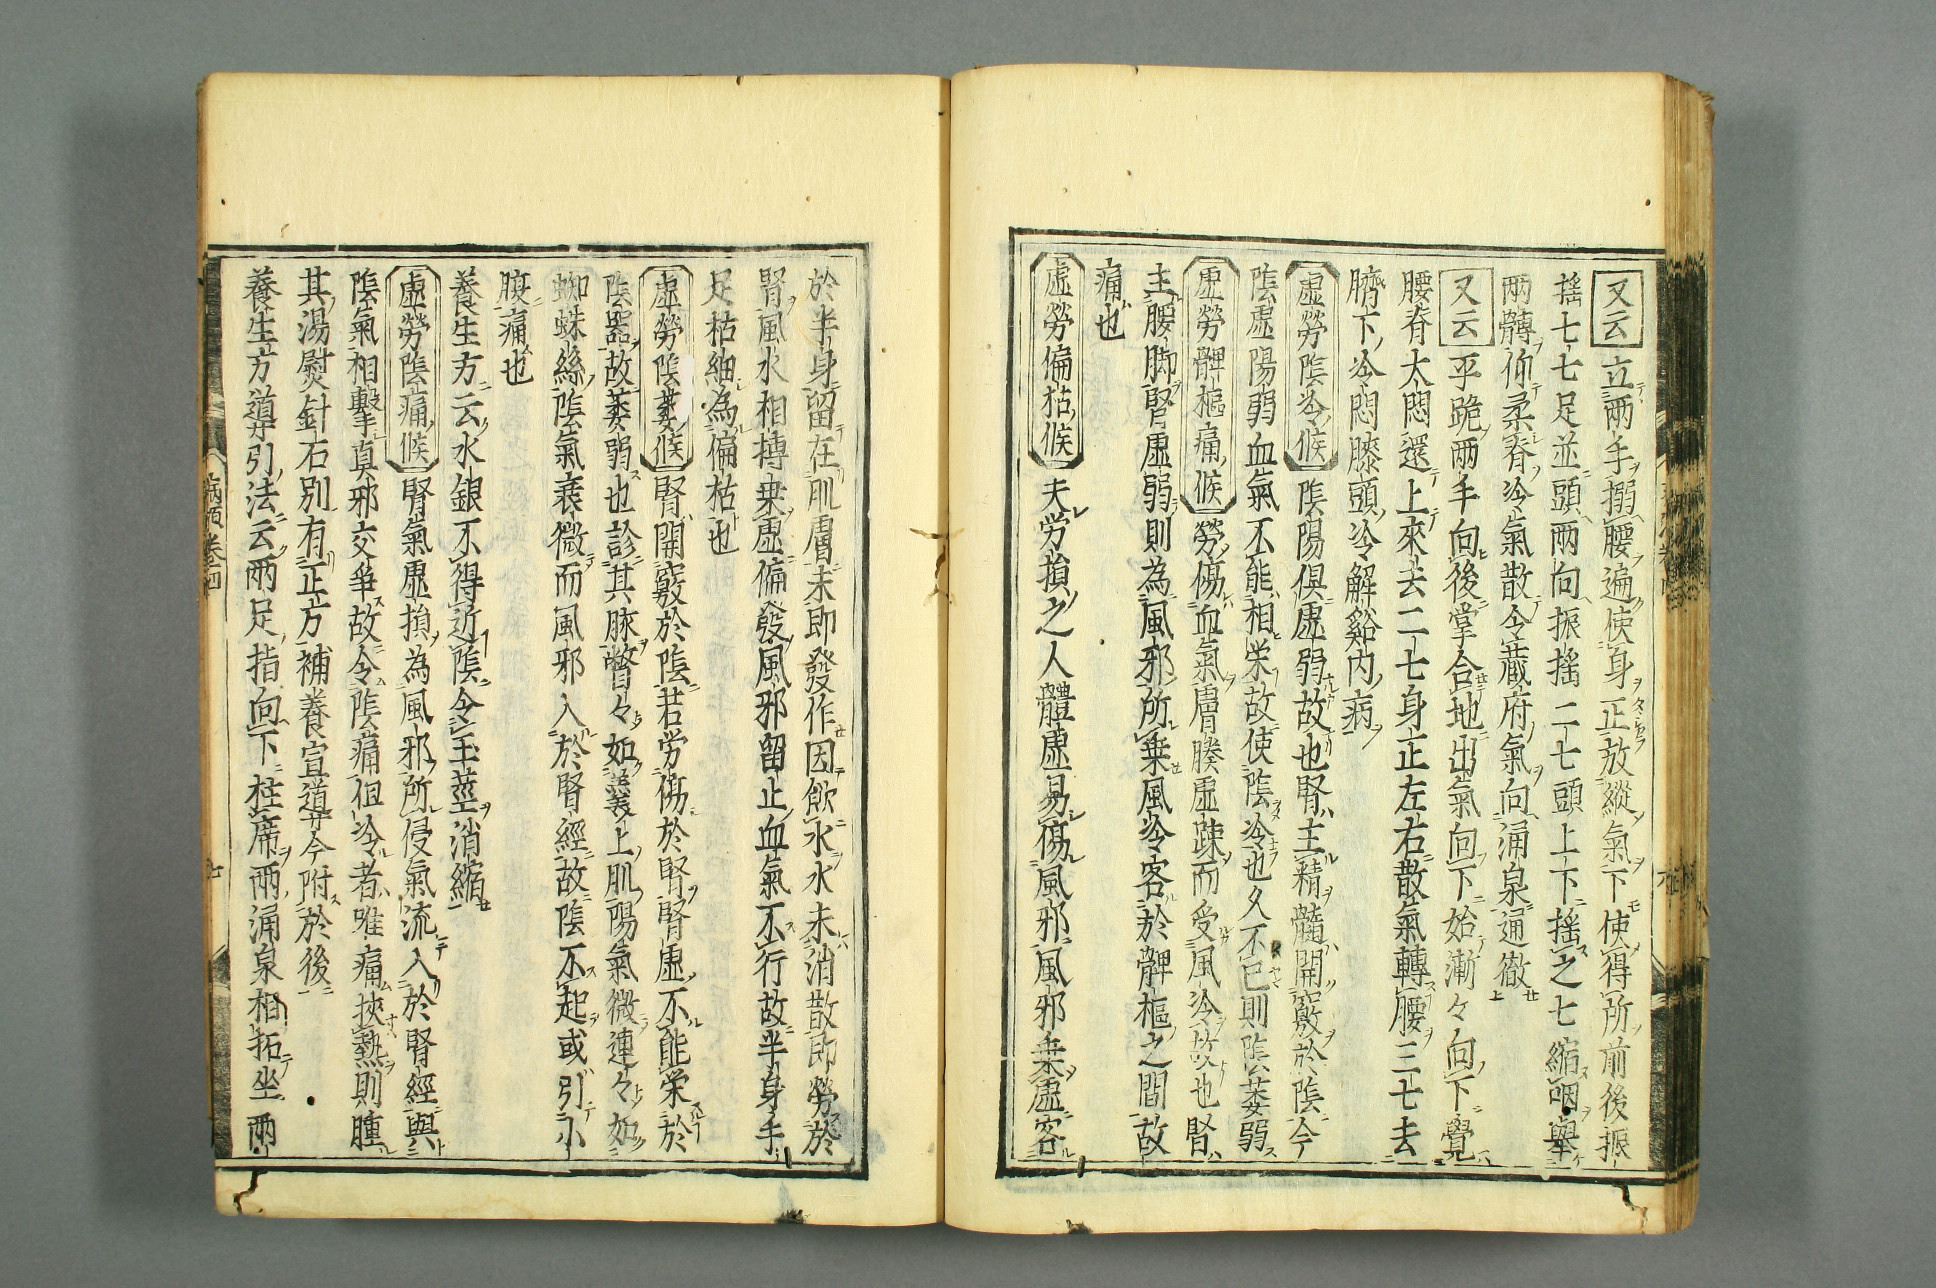 又云立兩手搦腰遍使身正放縱氣下使得所前後振
搖七七足並頭兩向振搖二七頭上下搖之七縮咽舉
兩髆仰柔脊冷氣散令蔵府氣向涌泉通徹
又云平跪兩手向後掌合地出氣向下始漸々向下覺
腰脊大悶還上來去二七身正左右散氣轉腰三七去
臍下冷悶膝頭冷解谿内病
虚勞陰冷候陰陽俱虚弱故也腎主精髓開竅於陰今
陰虚陽弱血氣不能相栄故使陰冷也久不已則陰萎弱
虚勞髀樞痛候勞傷血氣膚腠虚踈而受風冷故也腎
主腰脚腎虚弱則為風邪所乗風冷客於髀樞之間故
痛也
虚勞偏枯候夫労損之人體虚易傷風邪風邪乗虚客
於半身留在肌膚未即發作因飲水水未消散即勞於
腎風水相搏乗虚偏發風邪留止血氣不行故半身手
足枯細為偏枯也
虚勞陰萎候腎開竅於陰若労傷於腎腎虚不能栄於
陰器故萎弱也診其脉瞥々如羹上肌陽氣微連々如
蜘蛛絲陰氣衰微而風邪入於腎經故陰不起或引小
腹痛也
養生方云水銀不得近陰令玉莖消縮
虚勞陰痛候腎氣虚損為風邪所侵氣流入於腎經與
陰氣相擊真邪交爭故令陰痛但冷者唯痛挾熱則腫
其湯熨針石別有正方補養宣導今附於後
養生方導引法云兩足指向下柱席兩涌泉相拓坐兩
病源卷四
七